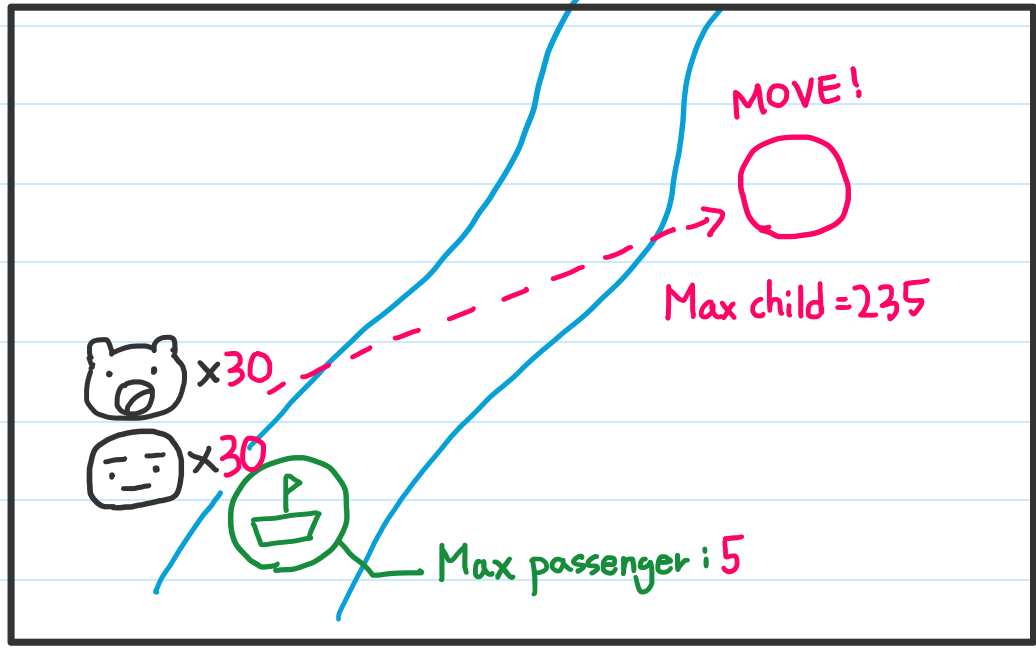 MOVE!
Max child = 235
×30
×30
Max passenger : 5